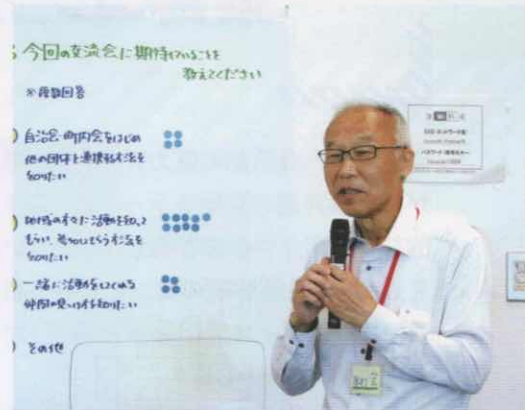 今回の交流会に期待していることを
教えてください
※複数回答
自治会・町内会をはじめ
他の団体と連携する方法を
知りたい
地域の方々に活動を知って
もらい、参加してもらう方法を
知りたい
一緒に活動をしてくれる
仲間の見つけ方を知りたい
その他